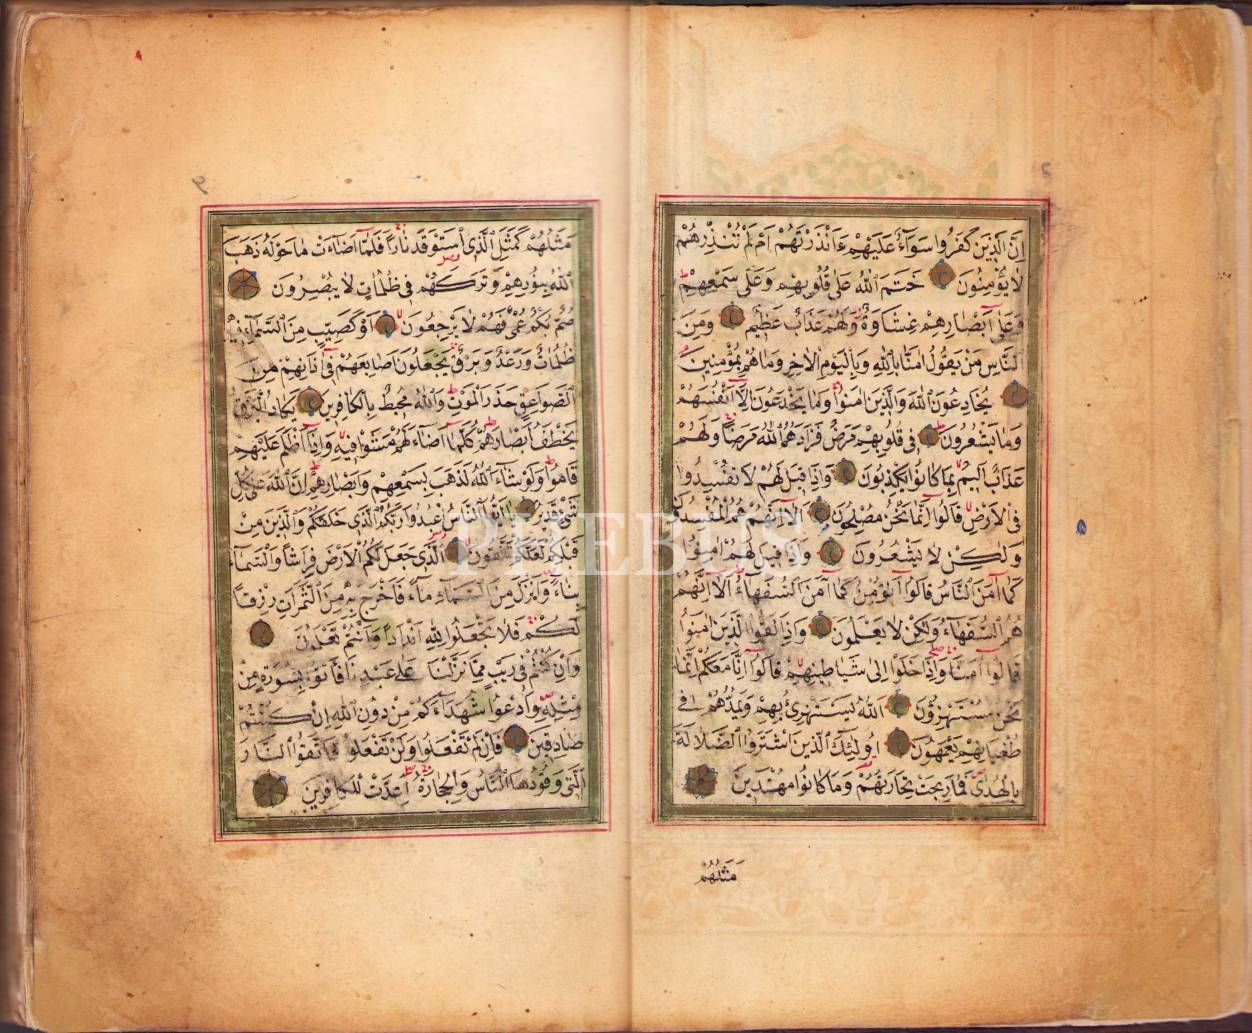 اِنَّ الَّذِينَ كَفَرُوا سَوَآءٌ عَلَيْهِمْ ءَاَنْذَرْتَهُمْ اَمْ لَمْ تُنْذِرْهُمْ
لَا يُؤْمِنُونَ خَتَمَ اللّٰهُ عَلٰى قُلُوبِهِمْ وَعَلٰى سَمْعِهِمْ
وَعَلٰى اَبْصَارِهِمْ غِشَاوَةٌ وَلَهُمْ عَذَابٌ عَظِيمٌ وَمِنَ
النَّاسِ مَنْ يَقُولُ اٰمَنَّا بِاللّٰهِ وَبِالْيَوْمِ الْاٰخِرِ وَمَا هُمْ بِمُؤْمِنِينَ
يُخَادِعُونَ اللّٰهَ وَالَّذِينَ اٰمَنُوا وَمَا يَخْدَعُونَ اِلَّا اَنْفُسَهُمْ
وَمَا يَشْعُرُونَ فِى قُلُوبِهِمْ مَرَضٌ فَزَادَهُمُ اللّٰهُ مَرَضًا وَلَهُمْ
عَذَابٌ اَلِيمٌ بِمَا كَانُوا يَكْذِبُونَ وَاِذَا قِيلَ لَهُمْ لَا تُفْسِدُوا
فِى الْاَرْضِ قَالُوا اِنَّمَا نَحْنُ مُصْلِحُونَ اَلَا اِنَّهُمْ هُمُ الْمُفْسِدُونَ
وَلٰكِنْ لَا يَشْعُرُونَ وَاِذَا قِيلَ لَهُمْ اٰمِنُوا
كَمَا اٰمَنَ النَّاسُ قَالُوا اَنُؤْمِنُ كَمَا اٰمَنَ السُّفَهَآءُ اَلَا اِنَّهُمْ
هُمُ السُّفَهَآءُ وَلٰكِنْ لَا يَعْلَمُونَ وَاِذَا لَقُوا الَّذِينَ اٰمَنُوا
قَالُوا اٰمَنَّا وَاِذَا خَلَوْا اِلٰى شَيَاطِينِهِمْ قَالُوا اِنَّا مَعَكُمْ اِنَّمَا
نَحْنُ مُسْتَهْزِؤُنَ اَللّٰهُ يَسْتَهْزِئُ بِهِمْ وَيَمُدُّهُمْ فِى
طُغْيَانِهِمْ يَعْمَهُونَ اُولٰئِكَ الَّذِينَ اشْتَرَوُا الضَّلَالَةَ
بِالْهُدٰى فَمَا رَبِحَتْ تِجَارَتُهُمْ وَمَا كَانُوا مُهْتَدِينَ
مَثَلُهُمْ
مَثَلُهُمْ كَمَثَلِ الَّذِى اسْتَوْقَدَ نَارًا فَلَمَّا اَضَآءَتْ مَا حَوْلَهُ ذَهَبَ
اللّٰهُ بِنُورِهِمْ وَتَرَكَهُمْ فِى ظُلُمَاتٍ لَا يُبْصِرُونَ
صُمٌّ بُكْمٌ عُمْىٌ فَهُمْ لَا يَرْجِعُونَ اَوْ كَصَيِّبٍ مِنَ السَّمَآءِ فِيهِ
ظُلُمَاتٌ وَرَعْدٌ وَبَرْقٌ يَجْعَلُونَ اَصَابِعَهُمْ فِى اٰذَانِهِمْ مِنَ
الصَّوَاعِقِ حَذَرَ الْمَوْتِ وَاللّٰهُ مُحِيطٌ بِالْكَافِرِينَ يَكَادُ الْبَرْقُ
يَخْطَفُ اَبْصَارَهُمْ كُلَّمَا اَضَآءَ لَهُمْ مَشَوْا فِيهِ وَاِذَا اَظْلَمَ عَلَيْهِمْ
قَامُوا وَلَوْ شَآءَ اللّٰهُ لَذَهَبَ بِسَمْعِهِمْ وَاَبْصَارِهِمْ اِنَّ اللّٰهَ عَلٰى كُلِّ
شَىْءٍ قَدِيرٌ يَا اَيُّهَا النَّاسُ اعْبُدُوا رَبَّكُمُ الَّذِى خَلَقَكُمْ وَالَّذِينَ مِنْ
قَبْلِكُمْ لَعَلَّكُمْ تَتَّقُونَ اَلَّذِى جَعَلَ لَكُمُ الْاَرْضَ فِرَاشًا وَالسَّمَآءَ
بِنَآءً وَاَنْزَلَ مِنَ السَّمَآءِ مَآءً فَاَخْرَجَ بِهِ مِنَ الثَّمَرَاتِ رِزْقًا
لَكُمْ فَلَا تَجْعَلُوا لِلّٰهِ اَنْدَادًا وَاَنْتُمْ تَعْلَمُونَ
وَاِنْ كُنْتُمْ فِى رَيْبٍ مِمَّا نَزَّلْنَا عَلٰى عَبْدِنَا فَأْتُوا بِسُورَةٍ مِنْ
مِثْلِهِ وَادْعُوا شُهَدَآءَكُمْ مِنْ دُونِ اللّٰهِ اِنْ كُنْتُمْ
صَادِقِينَ فَاِنْ لَمْ تَفْعَلُوا وَلَنْ تَفْعَلُوا فَاتَّقُوا النَّارَ
الَّتِى وَقُودُهَا النَّاسُ وَالْحِجَارَةُ اُعِدَّتْ لِلْكَافِرِينَ
PHEBUS